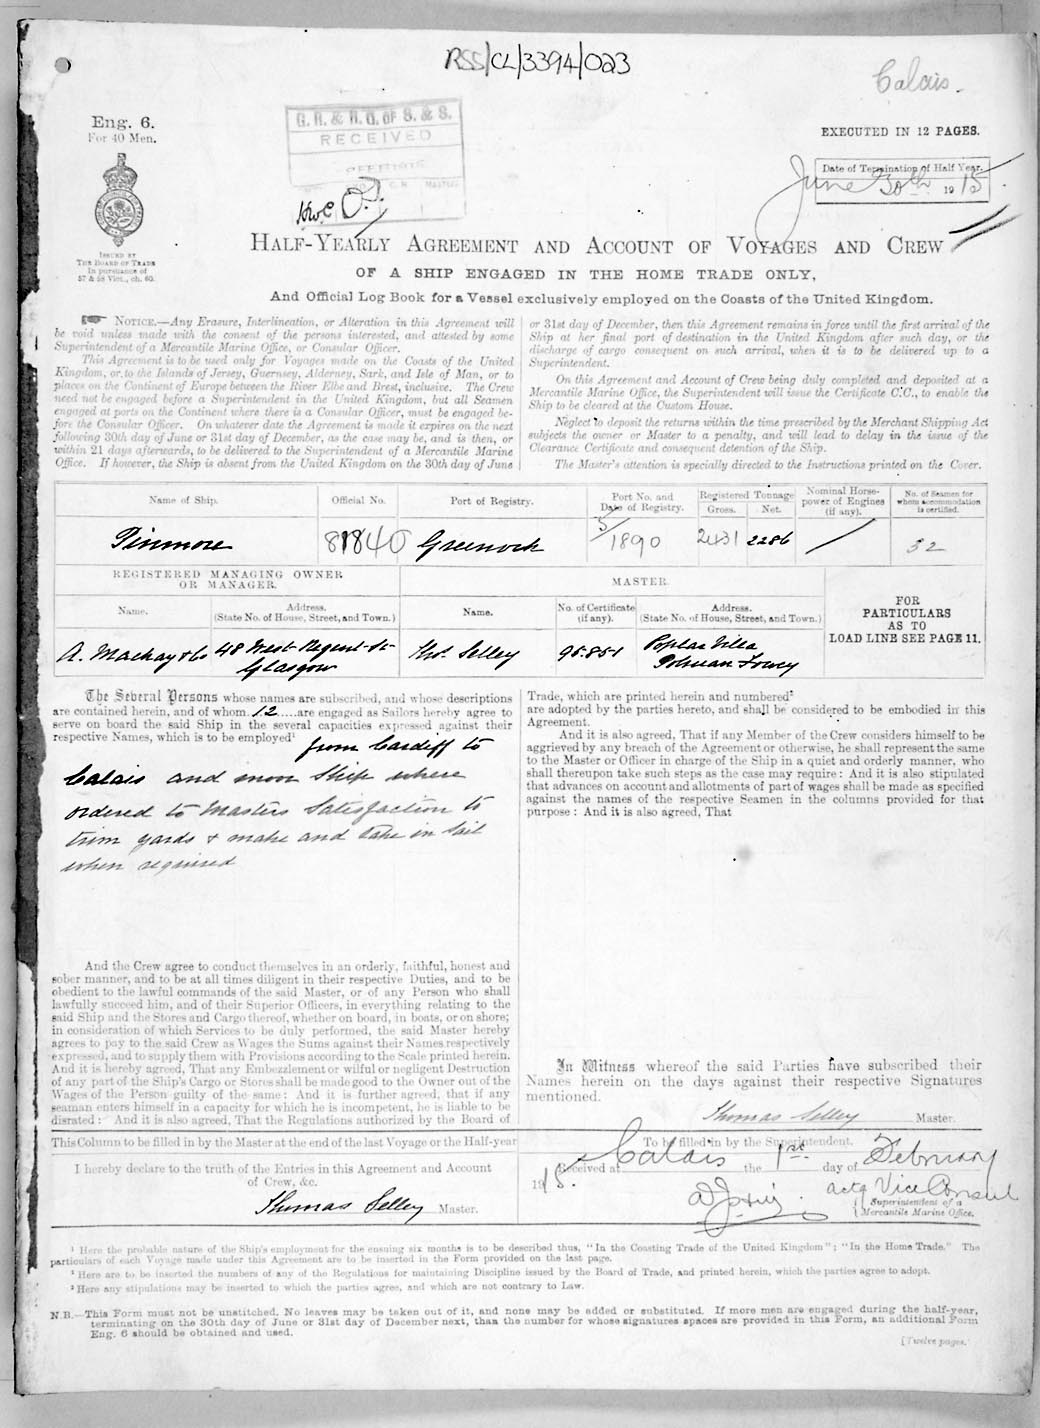 RSS/CL/3394/023
Calais.
G. R. & R. O. OF S. & S.
RECEIVED
Eng. 6.
For 40 Men.
EXECUTED IN 12 PAGES.
Date of Termination of Half Year.
June 30th 1915.
ISSUED BY
THE BOARD OF TRADE
In pursuance of
57 & 58 Vict., ch. 60.
HALF-YEARLY AGREEMENT AND ACCOUNT OF VOYAGES AND CREW
OF A SHIP ENGAGED IN THE HOME TRADE ONLY,
And Official Log Book for a Vessel exclusively employed on the Coasts of the United Kingdom.
NOTICE.—Any Erasure, Interlineation, or Alteration in this Agreement will
be void unless made with the consent of the persons interested, and attested by some
Superintendent of a Mercantile Marine Office, or Consular Officer.
This Agreement is to be used only for Voyages made on the Coasts of the United
Kingdom, or to the Islands of Jersey, Guernsey, Alderney, Sark, and Isle of Man, or to
places on the Continent of Europe between the River Elbe and Brest, inclusive. The Crew
need not be engaged before a Superintendent in the United Kingdom, but all Seamen
engaged at ports on the Continent where there is a Consular Officer, must be engaged be-
fore the Consular Officer. On whatever date the Agreement is made it expires on the next
following 30th day of June or 31st day of December, as the case may be, and is then, or
within 21 days afterwards, to be delivered to the Superintendent of a Mercantile Marine
Office. If however, the Ship is absent from the United Kingdom on the 30th day of June
or 31st day of December, then this Agreement remains in force until the first arrival of the
Ship at her final port of destination in the United Kingdom after such day, or the
discharge of cargo consequent on such arrival, when it is to be delivered up to a
Superintendent.
On this Agreement and Account of Crew being duly completed and deposited at a
Mercantile Marine Office, the Superintendent will issue the Certificate C.C., to enable the
Ship to be cleared at the Custom House.
Neglect to deposit the returns within the time prescribed by the Merchant Shipping Act
subjects the owner or Master to a penalty, and will lead to delay in the issue of the
Clearance Certificate and consequent detention of the Ship.
The Master's attention is specially directed to the Instructions printed on the Cover.
Name of Ship. Official No. Port of Registry. Port No. and Date of Registry. Registered Tonnage Gross. Net. Nominal Horse-power of Engines (if any). No. of Seamen for whom accommodation is certified.
Pinmore 81840 Greenock 5/1890 2431 2286 / 32
REGISTERED MANAGING OWNER
OR MANAGER.
MASTER.
Name. Address. (State No. of House, Street, and Town.) Name. No. of Certificate (if any). Address. (State No. of House, Street, and Town.)
FOR
PARTICULARS
AS TO
LOAD LINE SEE PAGE 11.
A. Mackay & Co 48 West Regent St Glasgow Thos. Selley 95851 Poplar Villa Polruan Fowey
The Several Persons whose names are subscribed, and whose descriptions
are contained herein, and of whom 12 are engaged as Sailors hereby agree to
serve on board the said Ship in the several capacities expressed against their
respective Names, which is to be employed¹ from Cardiff to
Calais and moor Ship where
ordered to Masters Satisfaction to
trim yards & make and take in Sail
when required
And the Crew agree to conduct themselves in an orderly, faithful, honest and
sober manner, and to be at all times diligent in their respective Duties, and to be
obedient to the lawful commands of the said Master, or of any Person who shall
lawfully succeed him, and of their Superior Officers, in everything relating to the
said Ship and the Stores and Cargo thereof, whether on board, in boats, or on shore;
in consideration of which Services to be duly performed, the said Master hereby
agrees to pay to the said Crew as Wages the Sums against their Names respectively
expressed, and to supply them with Provisions according to the Scale printed herein.
And it is hereby agreed, That any Embezzlement or wilful or negligent Destruction
of any part of the Ship's Cargo or Stores shall be made good to the Owner out of the
Wages of the Person guilty of the same: And it is further agreed, that if any
seaman enters himself in a capacity for which he is incompetent, he is liable to be
disrated: And it is also agreed, That the Regulations authorized by the Board of
Trade, which are printed herein and numbered²
are adopted by the parties hereto, and shall be considered to be embodied in this
Agreement.
And it is also agreed, That if any Member of the Crew considers himself to be
aggrieved by any breach of the Agreement or otherwise, he shall represent the same
to the Master or Officer in charge of the Ship in a quiet and orderly manner, who
shall thereupon take such steps as the case may require: And it is also stipulated
that advances on account and allotments of part of wages shall be made as specified
against the names of the respective Seamen in the columns provided for that
purpose: And it is also agreed, That
In Witness whereof the said Parties have subscribed their
Names herein on the days against their respective Signatures
mentioned.
Thomas Selley Master.
This Column to be filled in by the Master at the end of the last Voyage or the Half-year
I hereby declare to the truth of the Entries in this Agreement and Account
of Crew, &c.
Thomas Selley Master.
To be filled in by the Superintendent.
Received at Calais the 1st day of February
1915.
actg Vice Consul
Superintendent of a
Mercantile Marine Office.
¹ Here the probable nature of the Ship's employment for the ensuing six months is to be described thus, "In the Coasting Trade of the United Kingdom"; "In the Home Trade." The
particulars of each Voyage made under this Agreement are to be inserted in the Form provided on the last page.
² Here are to be inserted the numbers of any of the Regulations for maintaining Discipline issued by the Board of Trade, and printed herein, which the parties agree to adopt.
³ Here any stipulations may be inserted to which the parties agree, and which are not contrary to Law.
N.B.—This Form must not be unstitched. No leaves may be taken out of it, and none may be added or substituted. If more men are engaged during the half-year,
terminating on the 30th day of June or 31st day of December next, than the number for whose signatures spaces are provided in this Form, an additional Form
Eng. 6 should be obtained and used.
[Twelve pages.